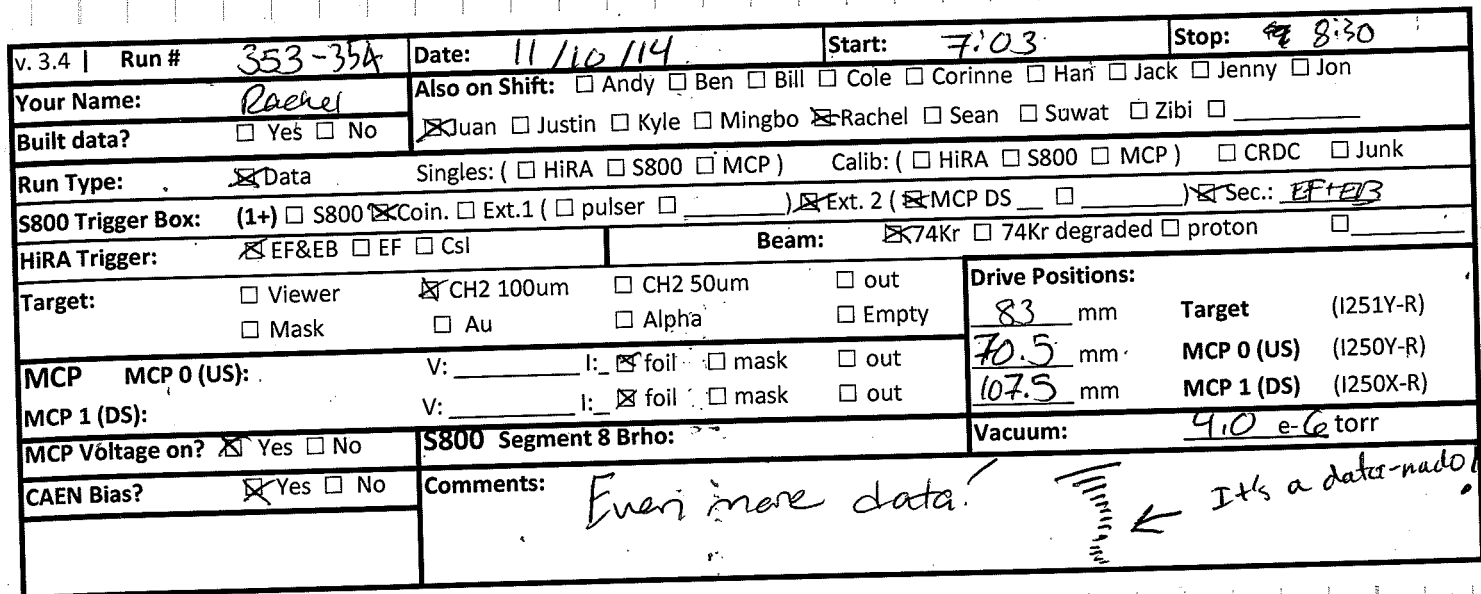 v. 3.4 | Run # 353-354 Date: 11/10/14 Start: 7:03 Stop: 8:30
Your Name: Rachel Also on Shift: ☐ Andy ☐ Ben ☐ Bill ☐ Cole ☐ Corinne ☐ Han ☐ Jack ☐ Jenny ☐ Jon
Built data? ☐ Yes ☐ No ☒ Juan ☐ Justin ☐ Kyle ☐ Mingbo ☒ Rachel ☐ Sean ☐ Suwat ☐ Zibi ☐ ________
Run Type: ☒ Data Singles: ( ☐ HiRA ☐ S800 ☐ MCP ) Calib: ( ☐ HiRA ☐ S800 ☐ MCP ) ☐ CRDC ☐ Junk
S800 Trigger Box: (1+) ☐ S800 ☒ Coin. ☐ Ext.1 ( ☐ pulser ☐ ________ ) ☒ Ext. 2 ( ☒ MCP DS __ ☐ ________ ) ☒ Sec.: EF+EB
HiRA Trigger: ☒ EF&EB ☐ EF ☐ CsI Beam: ☒ 74Kr ☐ 74Kr degraded ☐ proton ☐ ________
Target: ☐ Viewer ☒ CH2 100um ☐ CH2 50um ☐ out
☐ Mask ☐ Au ☐ Alpha ☐ Empty
Drive Positions:
83 mm Target (I251Y-R)
70.5 mm MCP 0 (US) (I250Y-R)
107.5 mm MCP 1 (DS) (I250X-R)
MCP MCP 0 (US): V: ________ I:_ ☒ foil ☐ mask ☐ out
MCP 1 (DS): V: ________ I:_ ☒ foil ☐ mask ☐ out
MCP Voltage on? ☒ Yes ☐ No S800 Segment 8 Brho: Vacuum: 4.0 e-6 torr
CAEN Bias? ☒ Yes ☐ No Comments: Even more data! ← It's a data-nado!